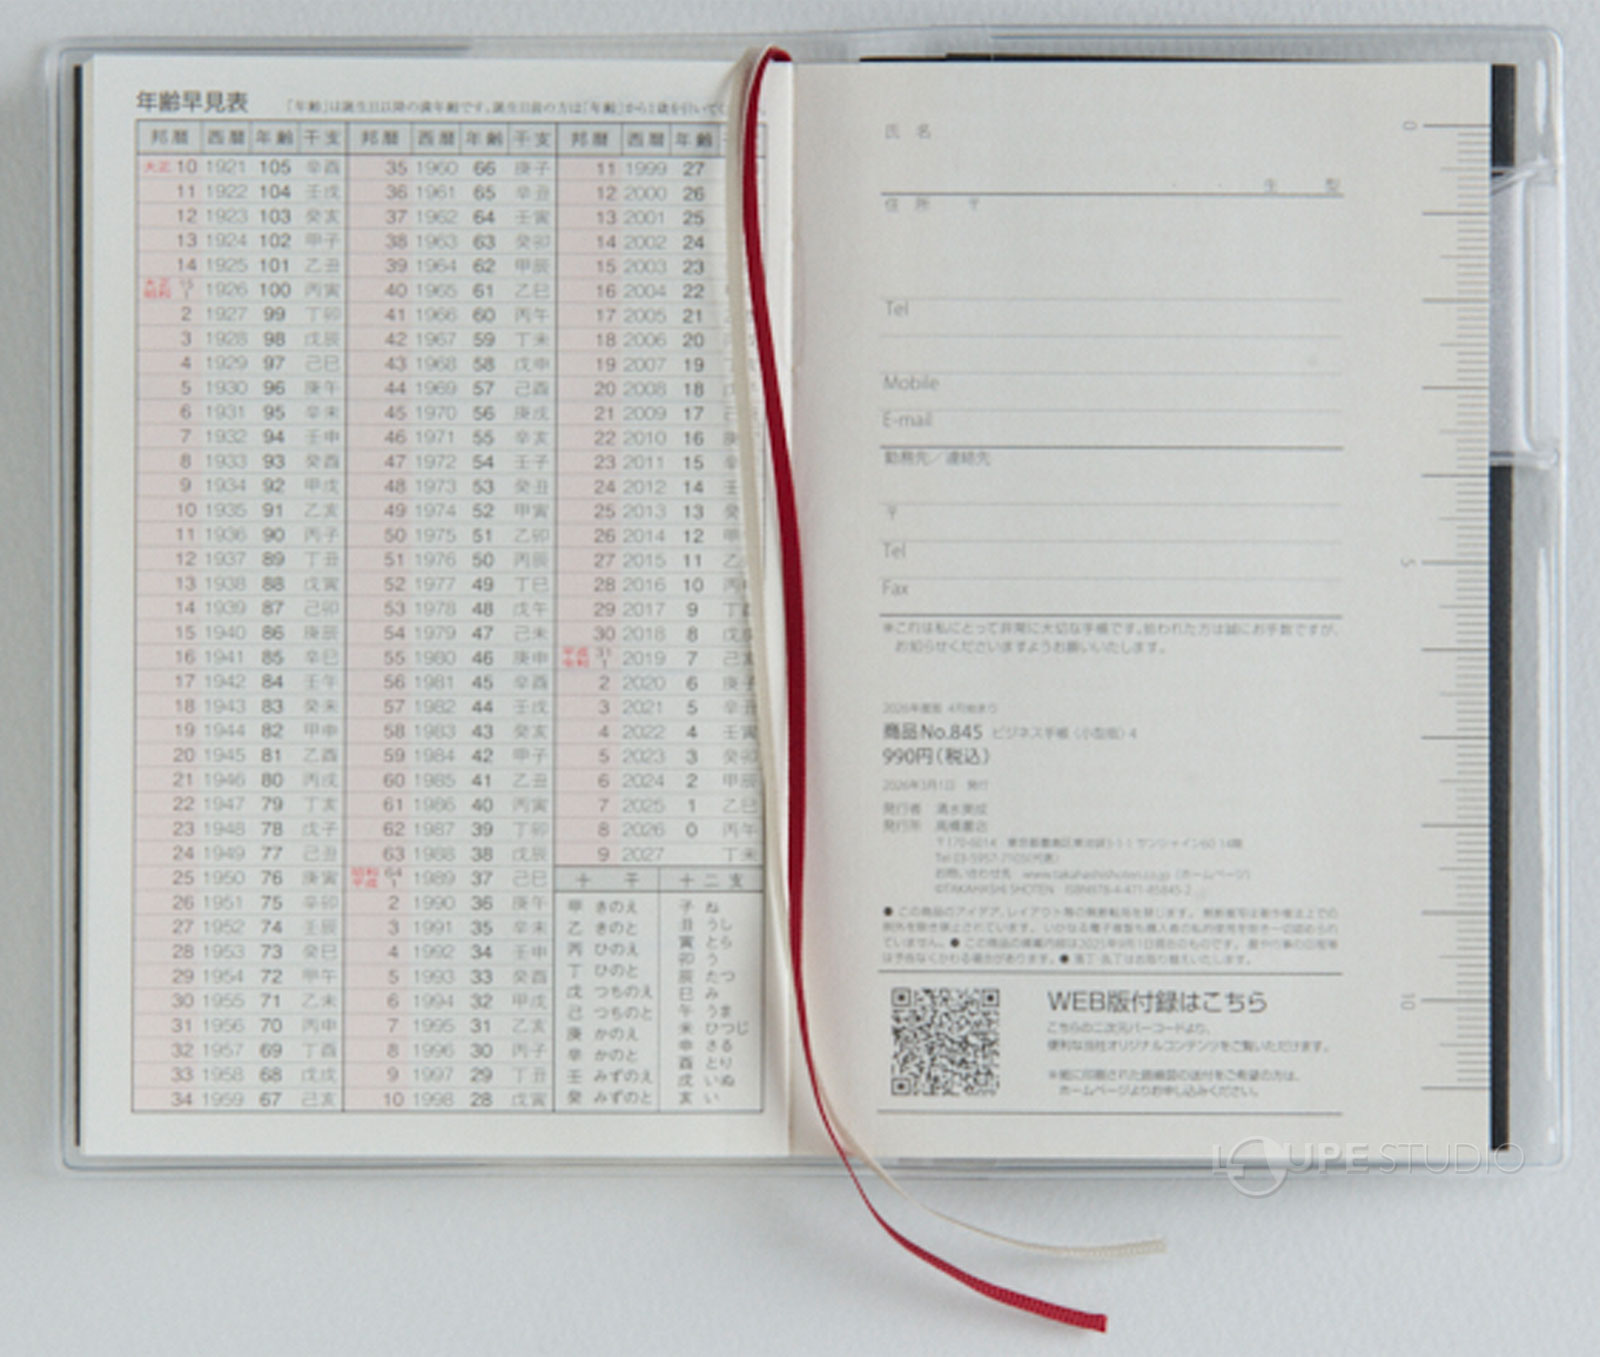 年齢早見表 「年齢」は誕生日以降の満年齢です。誕生日前の方は「年齢」から1歳を引いて
邦暦 西暦 年齢 干支 邦暦 西暦 年齢 干支 邦暦 西暦 年齢
大正10 1921 105 辛酉 35 1960 66 庚子 11 1999 27
11 1922 104 壬戌 36 1961 65 辛丑 12 2000 26
12 1923 103 癸亥 37 1962 64 壬寅 13 2001 25
13 1924 102 甲子 38 1963 63 癸卯 14 2002 24
14 1925 101 乙丑 39 1964 62 甲辰 15 2003 23
大正15 昭和1 1926 100 丙寅 40 1965 61 乙巳 16 2004 22
2 1927 99 丁卯 41 1966 60 丙午 17 2005 21
3 1928 98 戊辰 42 1967 59 丁未 18 2006 20
4 1929 97 己巳 43 1968 58 戊申 19 2007 19
5 1930 96 庚午 44 1969 57 己酉 20 2008 18
6 1931 95 辛未 45 1970 56 庚戌 21 2009 17
7 1932 94 壬申 46 1971 55 辛亥 22 2010 16 庚
8 1933 93 癸酉 47 1972 54 壬子 23 2011 15 辛
9 1934 92 甲戌 48 1973 53 癸丑 24 2012 14 壬
10 1935 91 乙亥 49 1974 52 甲寅 25 2013 13 癸
11 1936 90 丙子 50 1975 51 乙卯 26 2014 12 甲
12 1937 89 丁丑 51 1976 50 丙辰 27 2015 11 乙
13 1938 88 戊寅 52 1977 49 丁巳 28 2016 10 丙
14 1939 87 己卯 53 1978 48 戊午 29 2017 9 丁酉
15 1940 86 庚辰 54 1979 47 己未 30 2018 8 戊戌
16 1941 85 辛巳 55 1980 46 庚申 平成31 令和1 2019 7 己亥
17 1942 84 壬午 56 1981 45 辛酉 2 2020 6 庚子
18 1943 83 癸未 57 1982 44 壬戌 3 2021 5 辛丑
19 1944 82 甲申 58 1983 43 癸亥 4 2022 4 壬寅
20 1945 81 乙酉 59 1984 42 甲子 5 2023 3 癸卯
21 1946 80 丙戌 60 1985 41 乙丑 6 2024 2 甲辰
22 1947 79 丁亥 61 1986 40 丙寅 7 2025 1 乙巳
23 1948 78 戊子 62 1987 39 丁卯 8 2026 0 丙午
24 1949 77 己丑 63 1988 38 戊辰 9 2027 丁未
25 1950 76 庚寅 昭和64 平成1 1989 37 己巳 十干 十二支
26 1951 75 辛卯 2 1990 36 庚午 甲 きのえ 子 ね
27 1952 74 壬辰 3 1991 35 辛未 乙 きのと 丑 うし
28 1953 73 癸巳 4 1992 34 壬申 丙 ひのえ 寅 とら
29 1954 72 甲午 5 1993 33 癸酉 丁 ひのと 卯 う
30 1955 71 乙未 6 1994 32 甲戌 戊 つちのえ 辰 たつ
31 1956 70 丙申 7 1995 31 乙亥 己 つちのと 巳 み
32 1957 69 丁酉 8 1996 30 丙子 庚 かのえ 午 うま
33 1958 68 戊戌 9 1997 29 丁丑 辛 かのと 未 ひつじ
34 1959 67 己亥 10 1998 28 戊寅 壬 みずのえ 申 さる
癸 みずのと 酉 とり
戌 いぬ
亥 い
氏 名
生 型
住 所 〒
Tel
Mobile
E-mail
勤務先／連絡先
〒
Tel
Fax
※これは私にとって非常に大切な手帳です。拾われた方は誠にお手数ですが、
お知らせくださいますようお願いいたします。
2026年度版 4月始まり
商品No.845 ビジネス手帳〈小型版〉4
990円(税込)
2026年3月1日 発行
発行者 清水美成
発行所 高橋書店
〒170-6014 東京都豊島区東池袋3-1-1 サンシャイン60 14階
Tel 03-5957-7103(代表)
お問い合わせ先 www.takahashishoten.co.jp (ホームページ)
©TAKAHASHI SHOTEN ISBN978-4-471-85845-2
● この商品のアイデア、レイアウト等の無断転用を禁じます。 無断複写は著作権法上での
例外を除き禁止されています。 いかなる電子複製も購入者の私的使用を除き一切認められ
ていません。 ● この商品の掲載内容は2025年9月1日現在のものです。 暦や行事の日程等
は予告なくかわる場合があります。 ● 落丁・乱丁はお取り替えいたします。
WEB版付録はこちら
こちらの二次元バーコードより、
便利な当社オリジナルコンテンツをご覧いただけます。
※紙に印刷された路線図の送付をご希望の方は、
ホームページよりお申し込みください。
0
5
10
LOUPE STUDIO